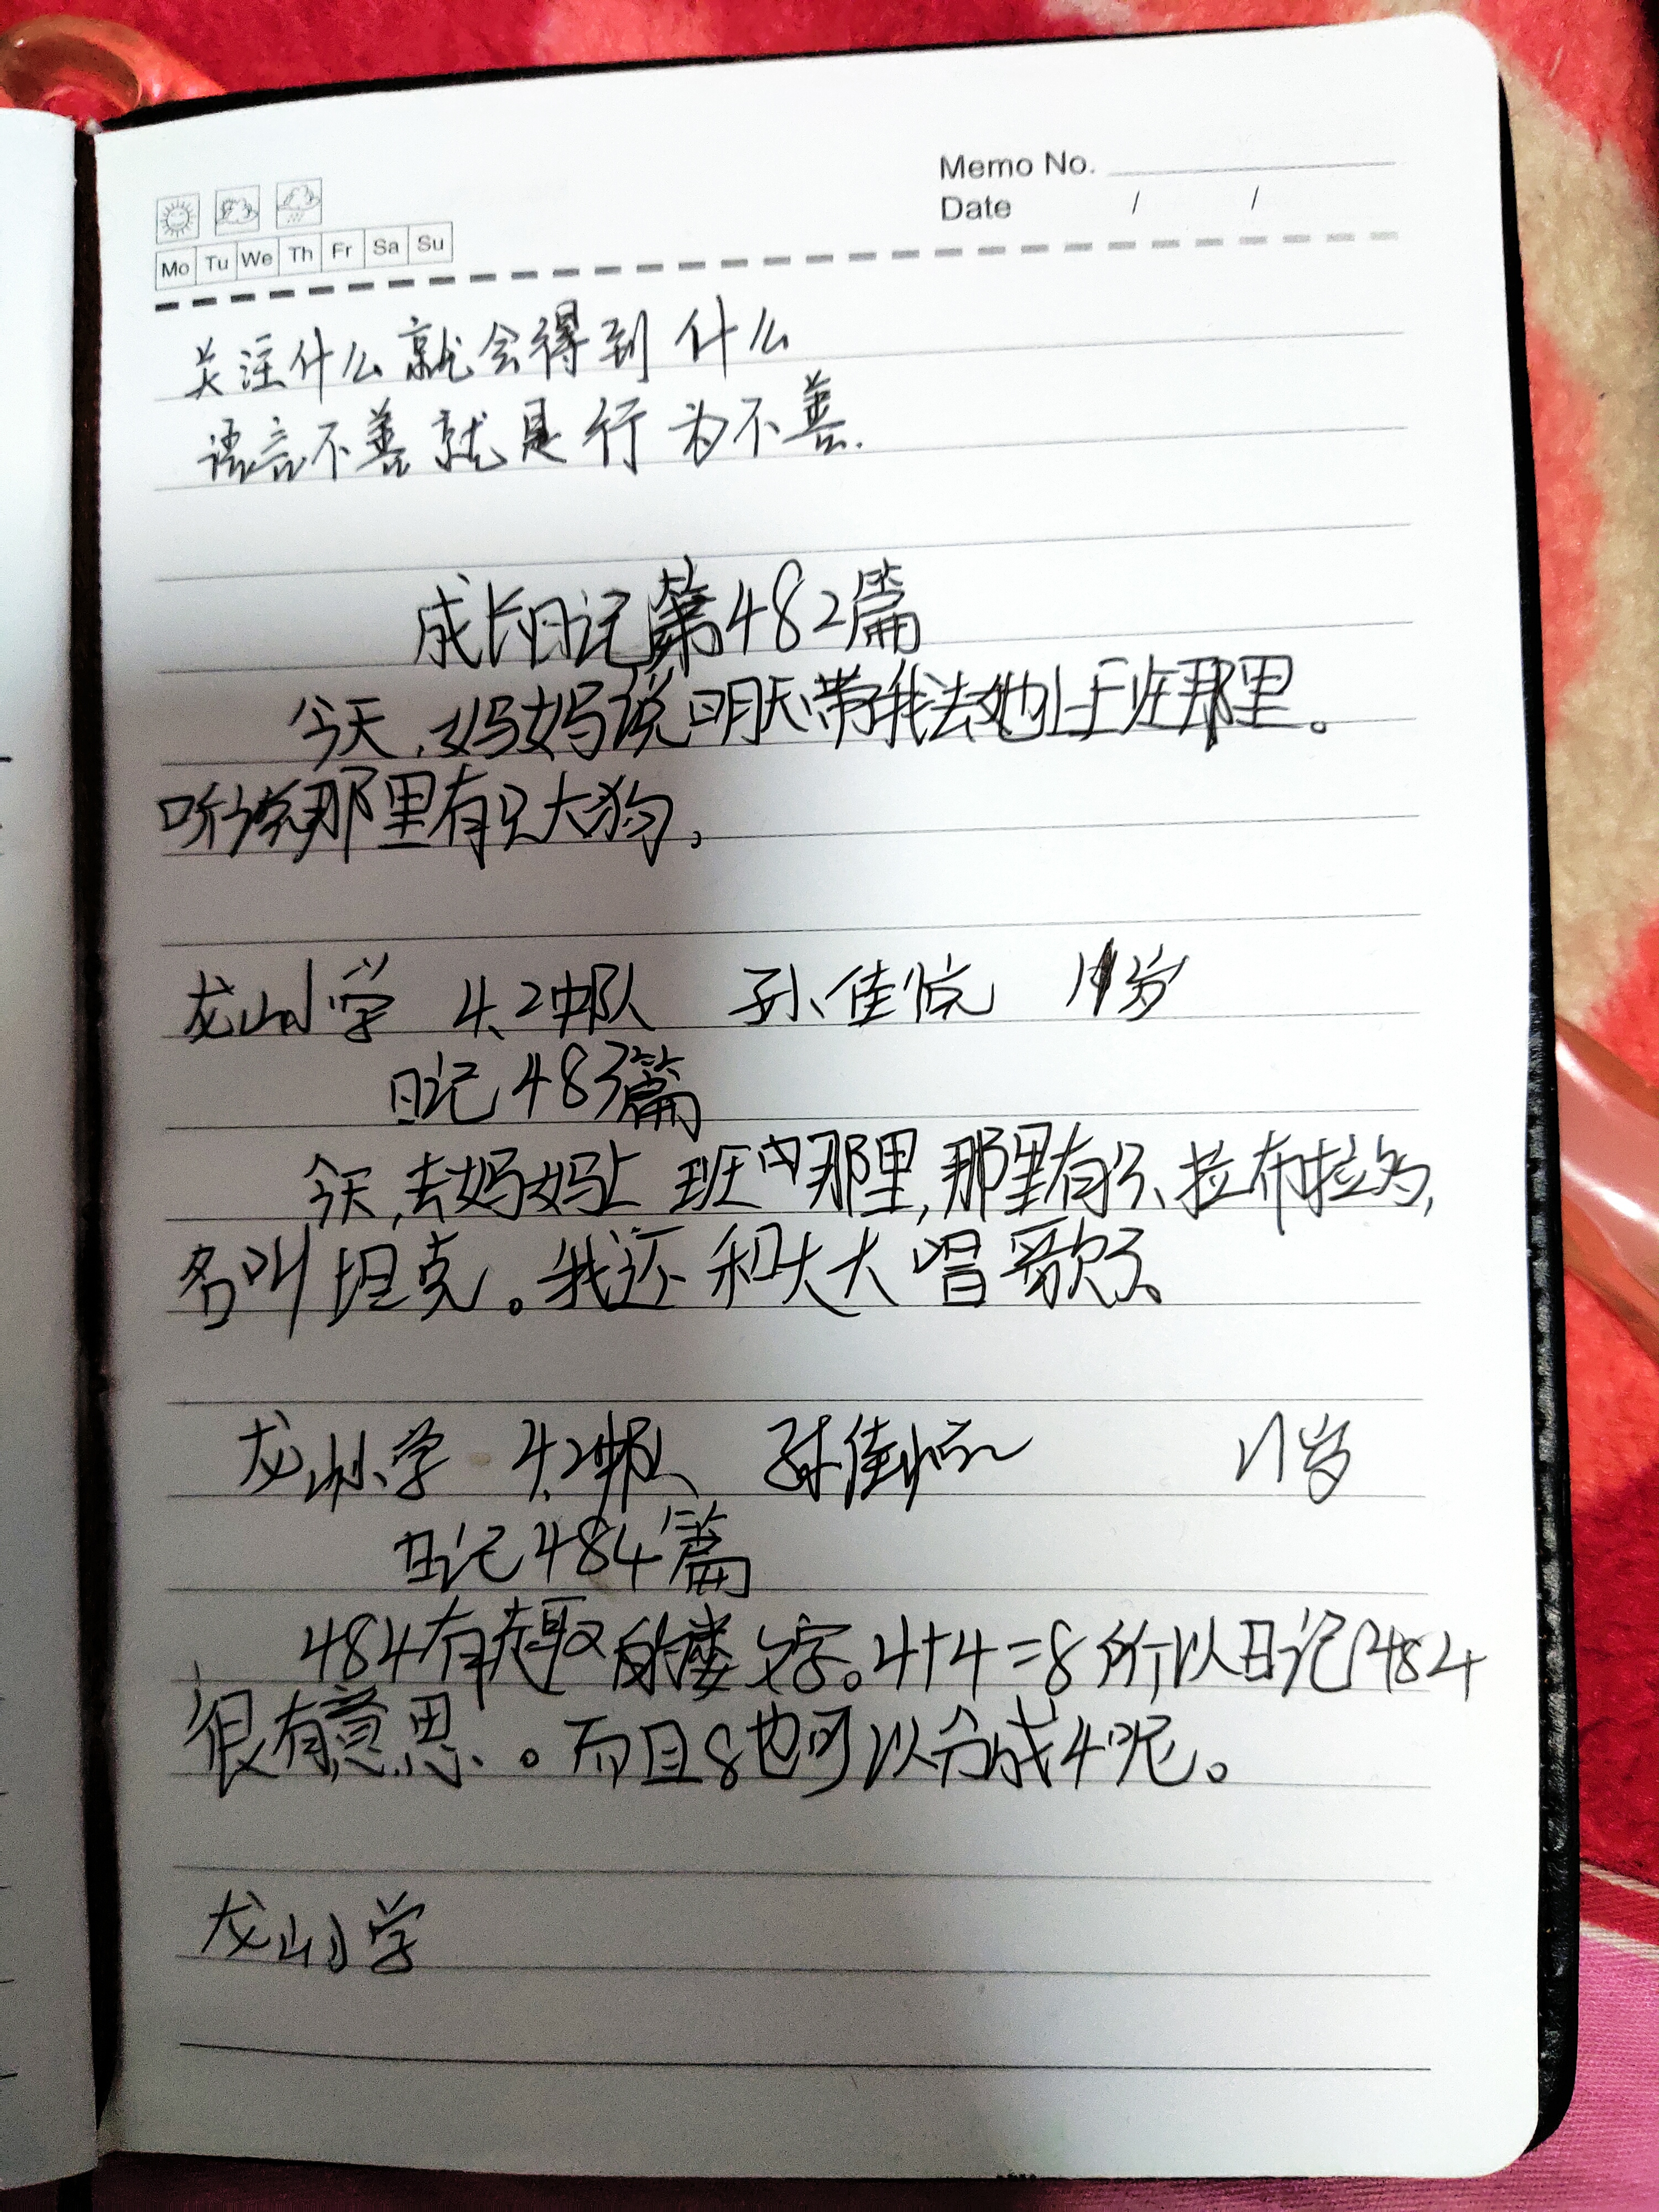 Memo No.
Date / /
Mo Tu We Th Fr Sa Su
关注什么就会得到什么
语言不善就是行为不善.
成长日记第482篇
今天,妈妈说明天带我去她上班那里。
听说那里有只大狗,
龙山小学 4.2中队 孙佳悦 11岁
日记483篇
今天,去妈妈上班的那里,那里有只拉布拉多,
名叫坦克。我还和大大唱歌了、
龙山小学 4.2中队 孙佳悦 11岁
日记484篇
484有趣的数字。4+4=8所以日记484
很有意思。而且8也可以分成4呢。
龙山小学